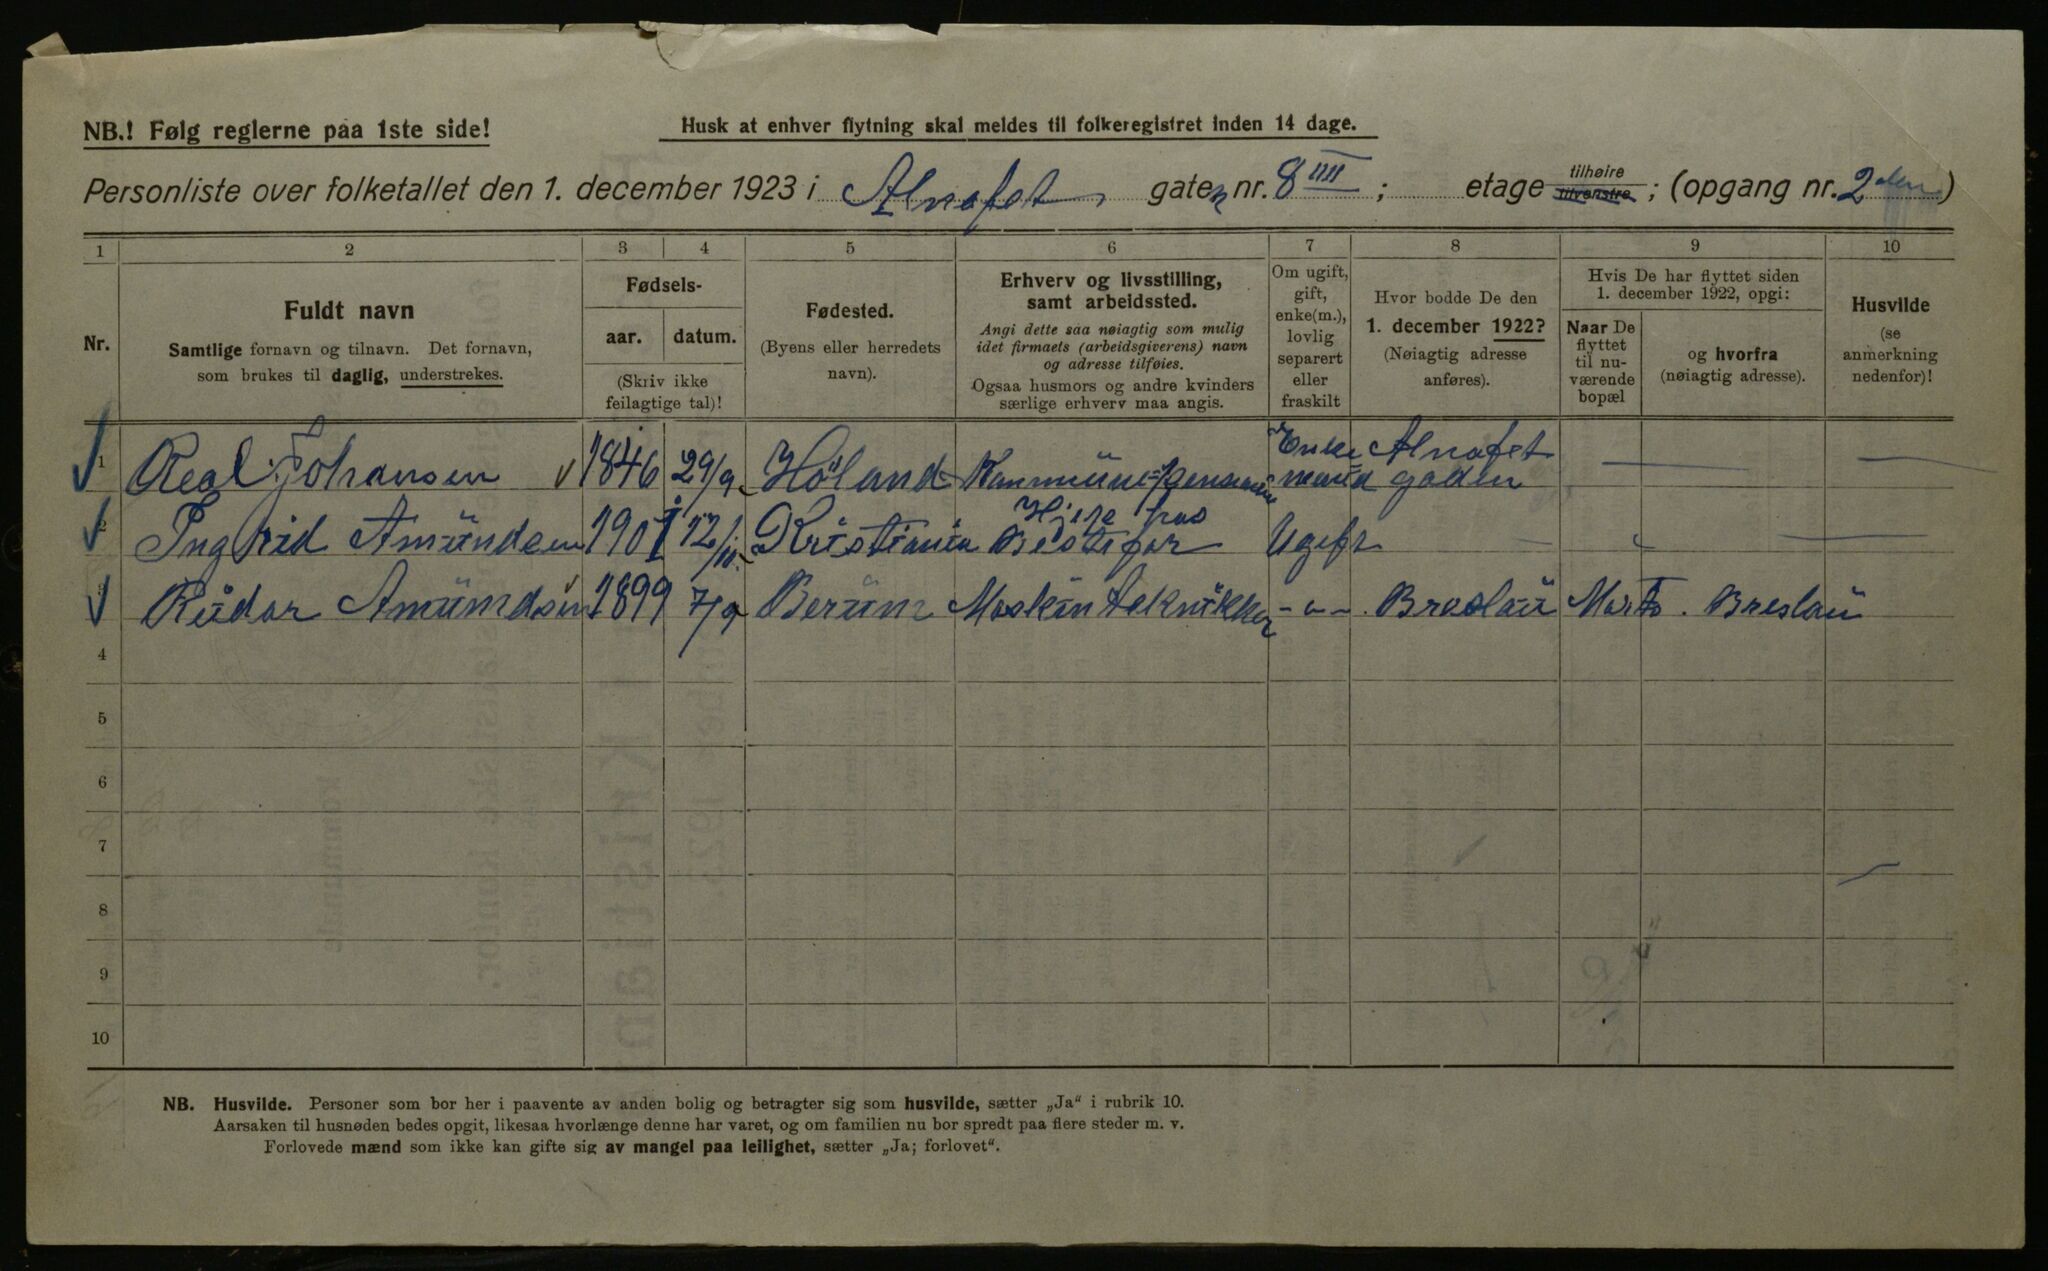 NB.! Følg reglerne paa 1ste side!
Husk at enhver flytning skal meldes til folkeregistret inden 14 dage.
Personliste over folketallet den 1. december 1923 i Alnafet gaten nr. 8 IIII ; etage tilhøire tilvenstre ; (opgang nr. 2den)
1 2 3 4 5 6 7 8 9 10
Nr.
Fuldt navn
Samtlige fornavn og tilnavn. Det fornavn,
som brukes til daglig, understrekes.
Fødsels-
aar. datum.
(Skriv ikke
feilagtige tal)!
Fødested.
(Byens eller herredets
navn).
Erhverv og livsstilling,
samt arbeidssted.
Angi dette saa nøiagtig som mulig
idet firmaets (arbeidsgiverens) navn
og adresse tilføies.
Ogsaa husmors og andre kvinders
særlige erhverv maa angis.
Om ugift,
gift,
enke(m.),
lovlig
separert
eller
fraskilt
Hvor bodde De den
1. december 1922?
(Nøiagtig adresse
anføres).
Hvis De har flyttet siden
1. december 1922, opgi:
Naar De
flyttet
til nu-
værende
bopæl
og hvorfra
(nøiagtig adresse).
Husvilde
(se
anmerkning
nedenfor)!
1 Johansen 1846 29/9 Höland Enke= mand Alnafet gaden — —
2 Ingrid Amundsen 1901 12/10. Kristiania Hjelp hos Bestefar Ugift — —
3 Reidar Amundsen 1899 7/9 Berum Maskinteknikker -"- Breslau Marts. Breslau
4
5
6
7
8
9
10
NB. Husvilde. Personer som bor her i paavente av anden bolig og betragter sig som husvilde, sætter „Ja“ i rubrik 10.
Aarsaken til husnøden bedes opgit, likesaa hvorlænge denne har varet, og om familien nu bor spredt paa flere steder m. v.
Forlovede mænd som ikke kan gifte sig av mangel paa leilighet, sætter „Ja; forlovet“.